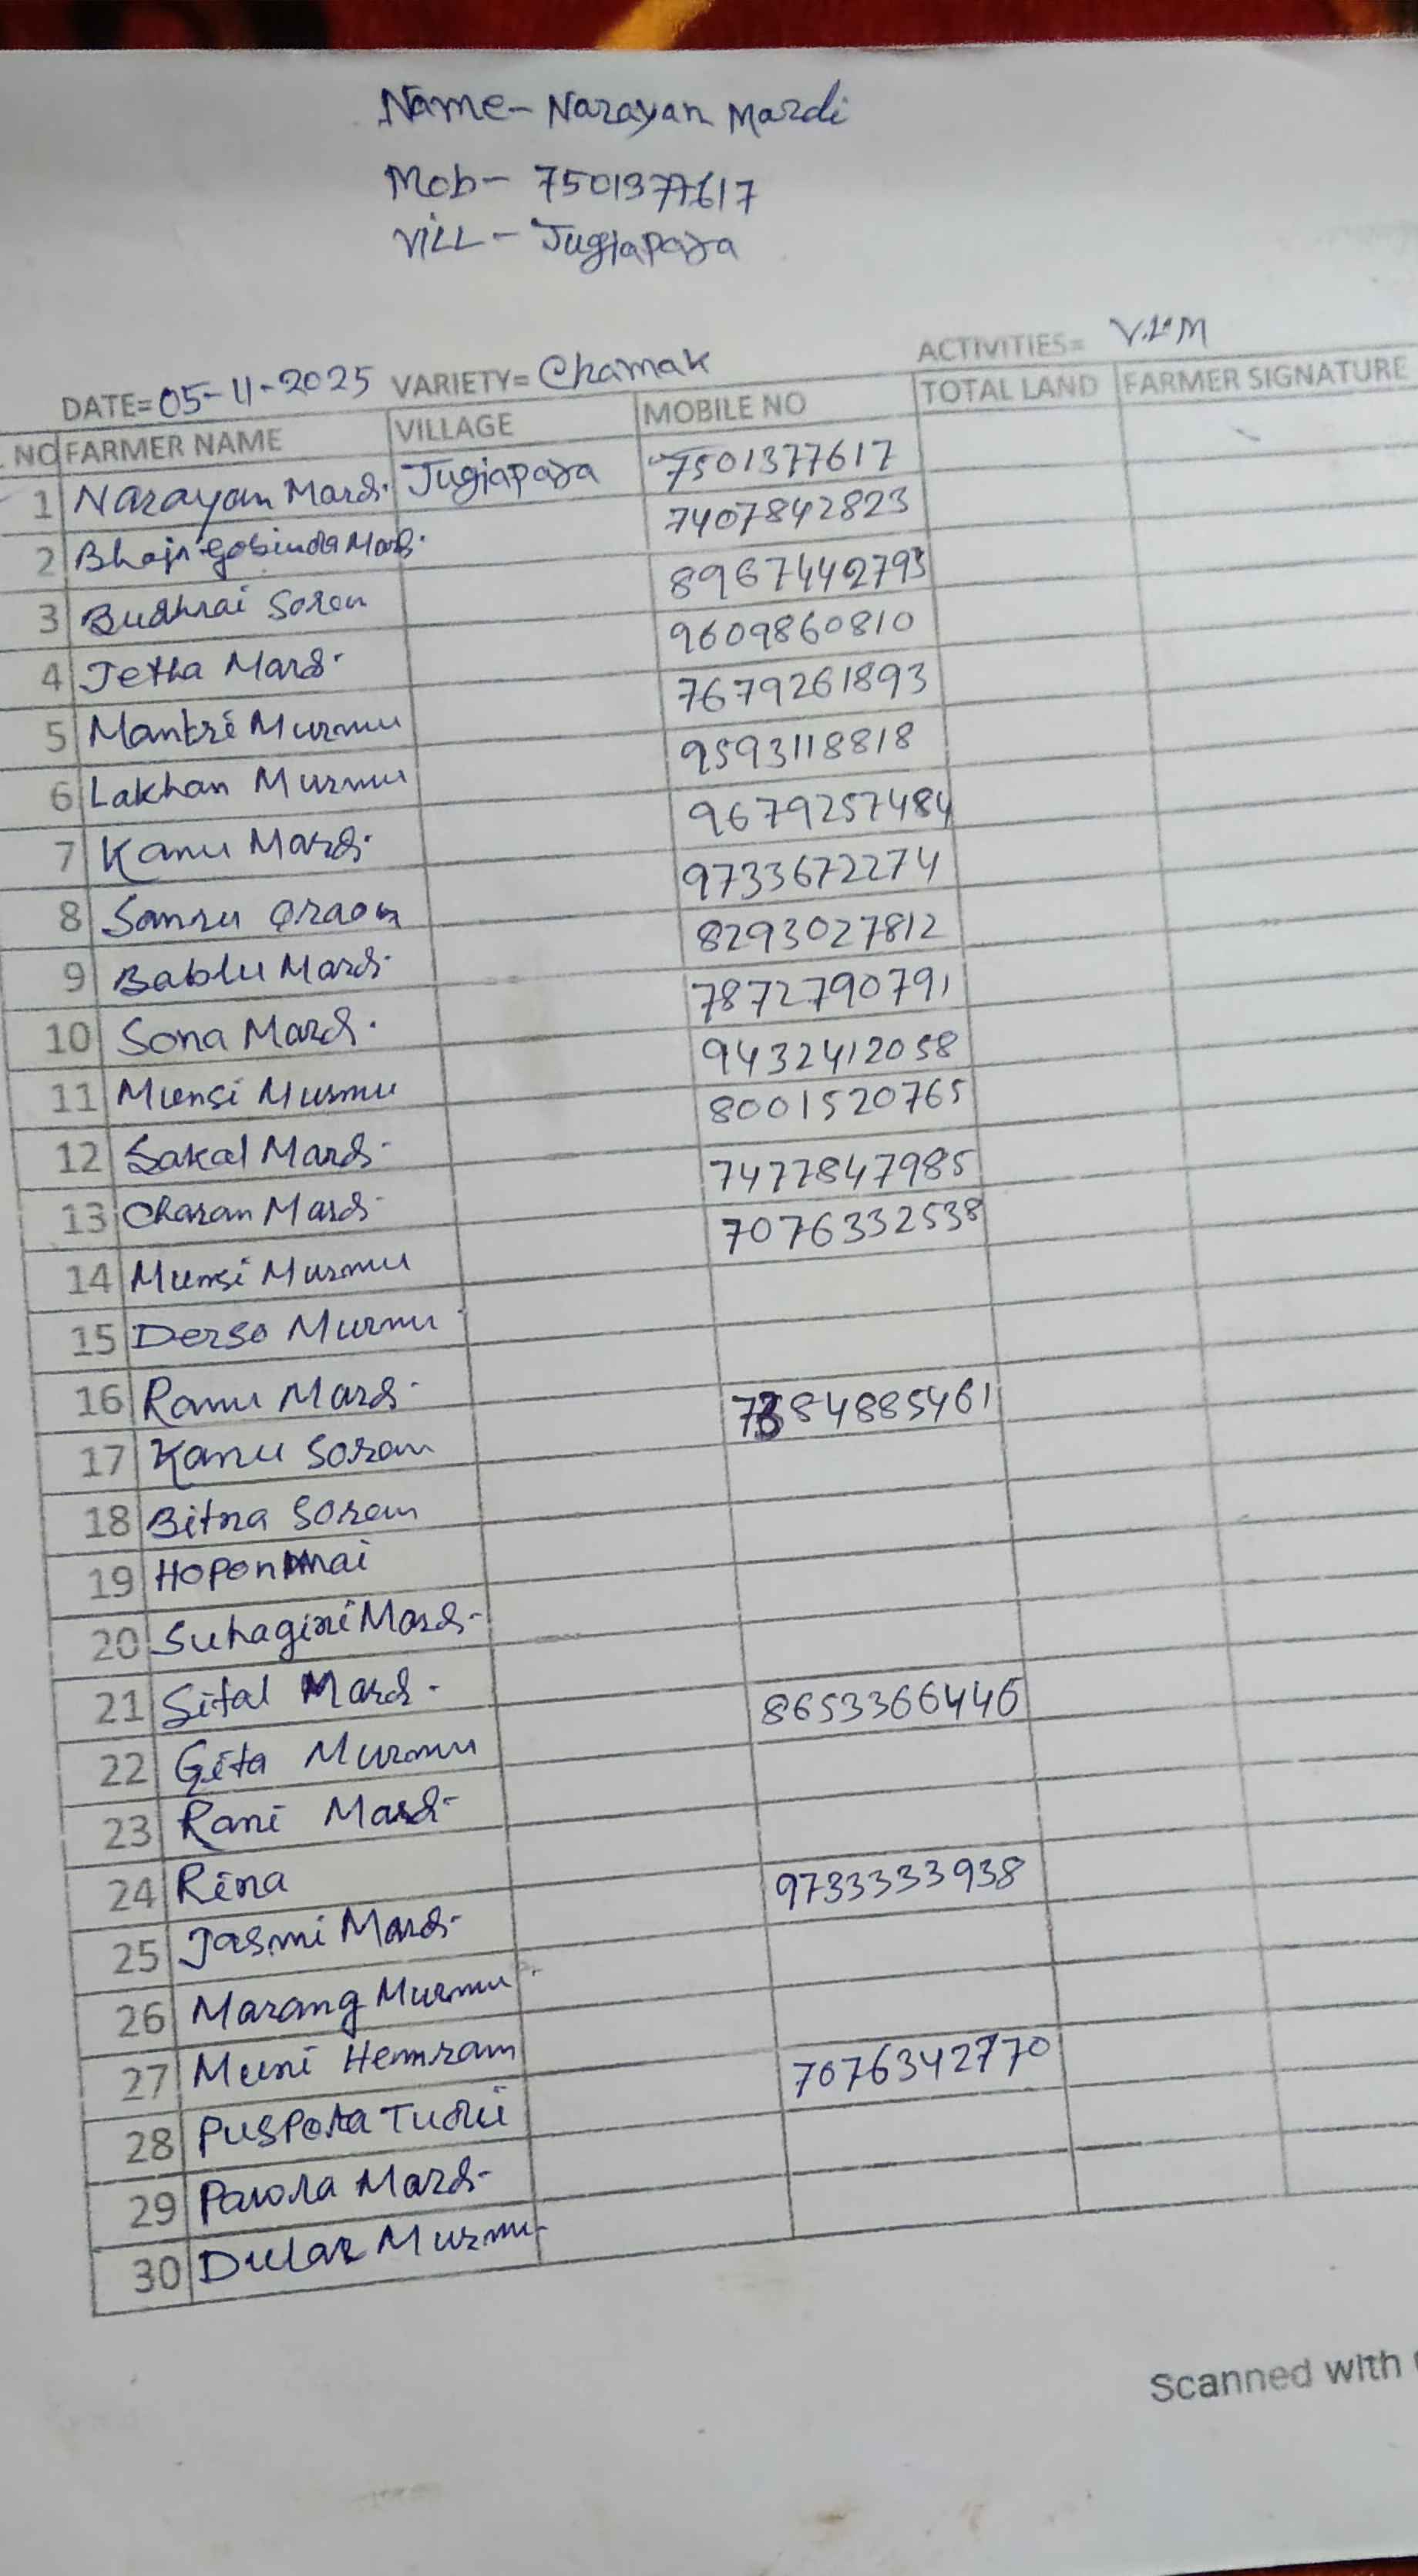 Name- Narayan Mardi
Mob- 7501377617
VILL- Jugiapara
DATE= 05-11-2025 VARIETY= Chamak ACTIVITIES= V.L.M
NO FARMER NAME VILLAGE MOBILE NO TOTAL LAND FARMER SIGNATURE
1 Narayan Mardi Jugiapara 7501377617
2 Gobinda Mardi 7407842823
3 Budhrai Soren 8967442793
4 Jetha Mardi 9609860810
5 Mantri Murmu 7679261893
6 Lakhan Murmu 9593118818
7 Kanu Mardi 9679257484
8 Sanru Oraon 9733672274
9 Bablu Mardi 8293027812
10 Sona Mardi 7872790791
11 Munsi Murmu 9432412058
12 Sakal Mardi 8001520765
13 Charan Mardi 7477847985
14 Munsi Murmu 7076332538
15 Derso Murmu
16 Ramu Mardi
17 Kanu Soran 84885461
18 Bitna Soren
19 Hopon
20 Suhagini Mardi
21 Sital Mardi
22 Gita Murmu 8653366446
23 Rani Mardi
24 Rina
25 Jasmi Mardi 9733333938
26 Marang Murmu
27 Muni Hemram
28 Tudu 7076342770
29 Mardi
30 Dular Murmu
Scanned with